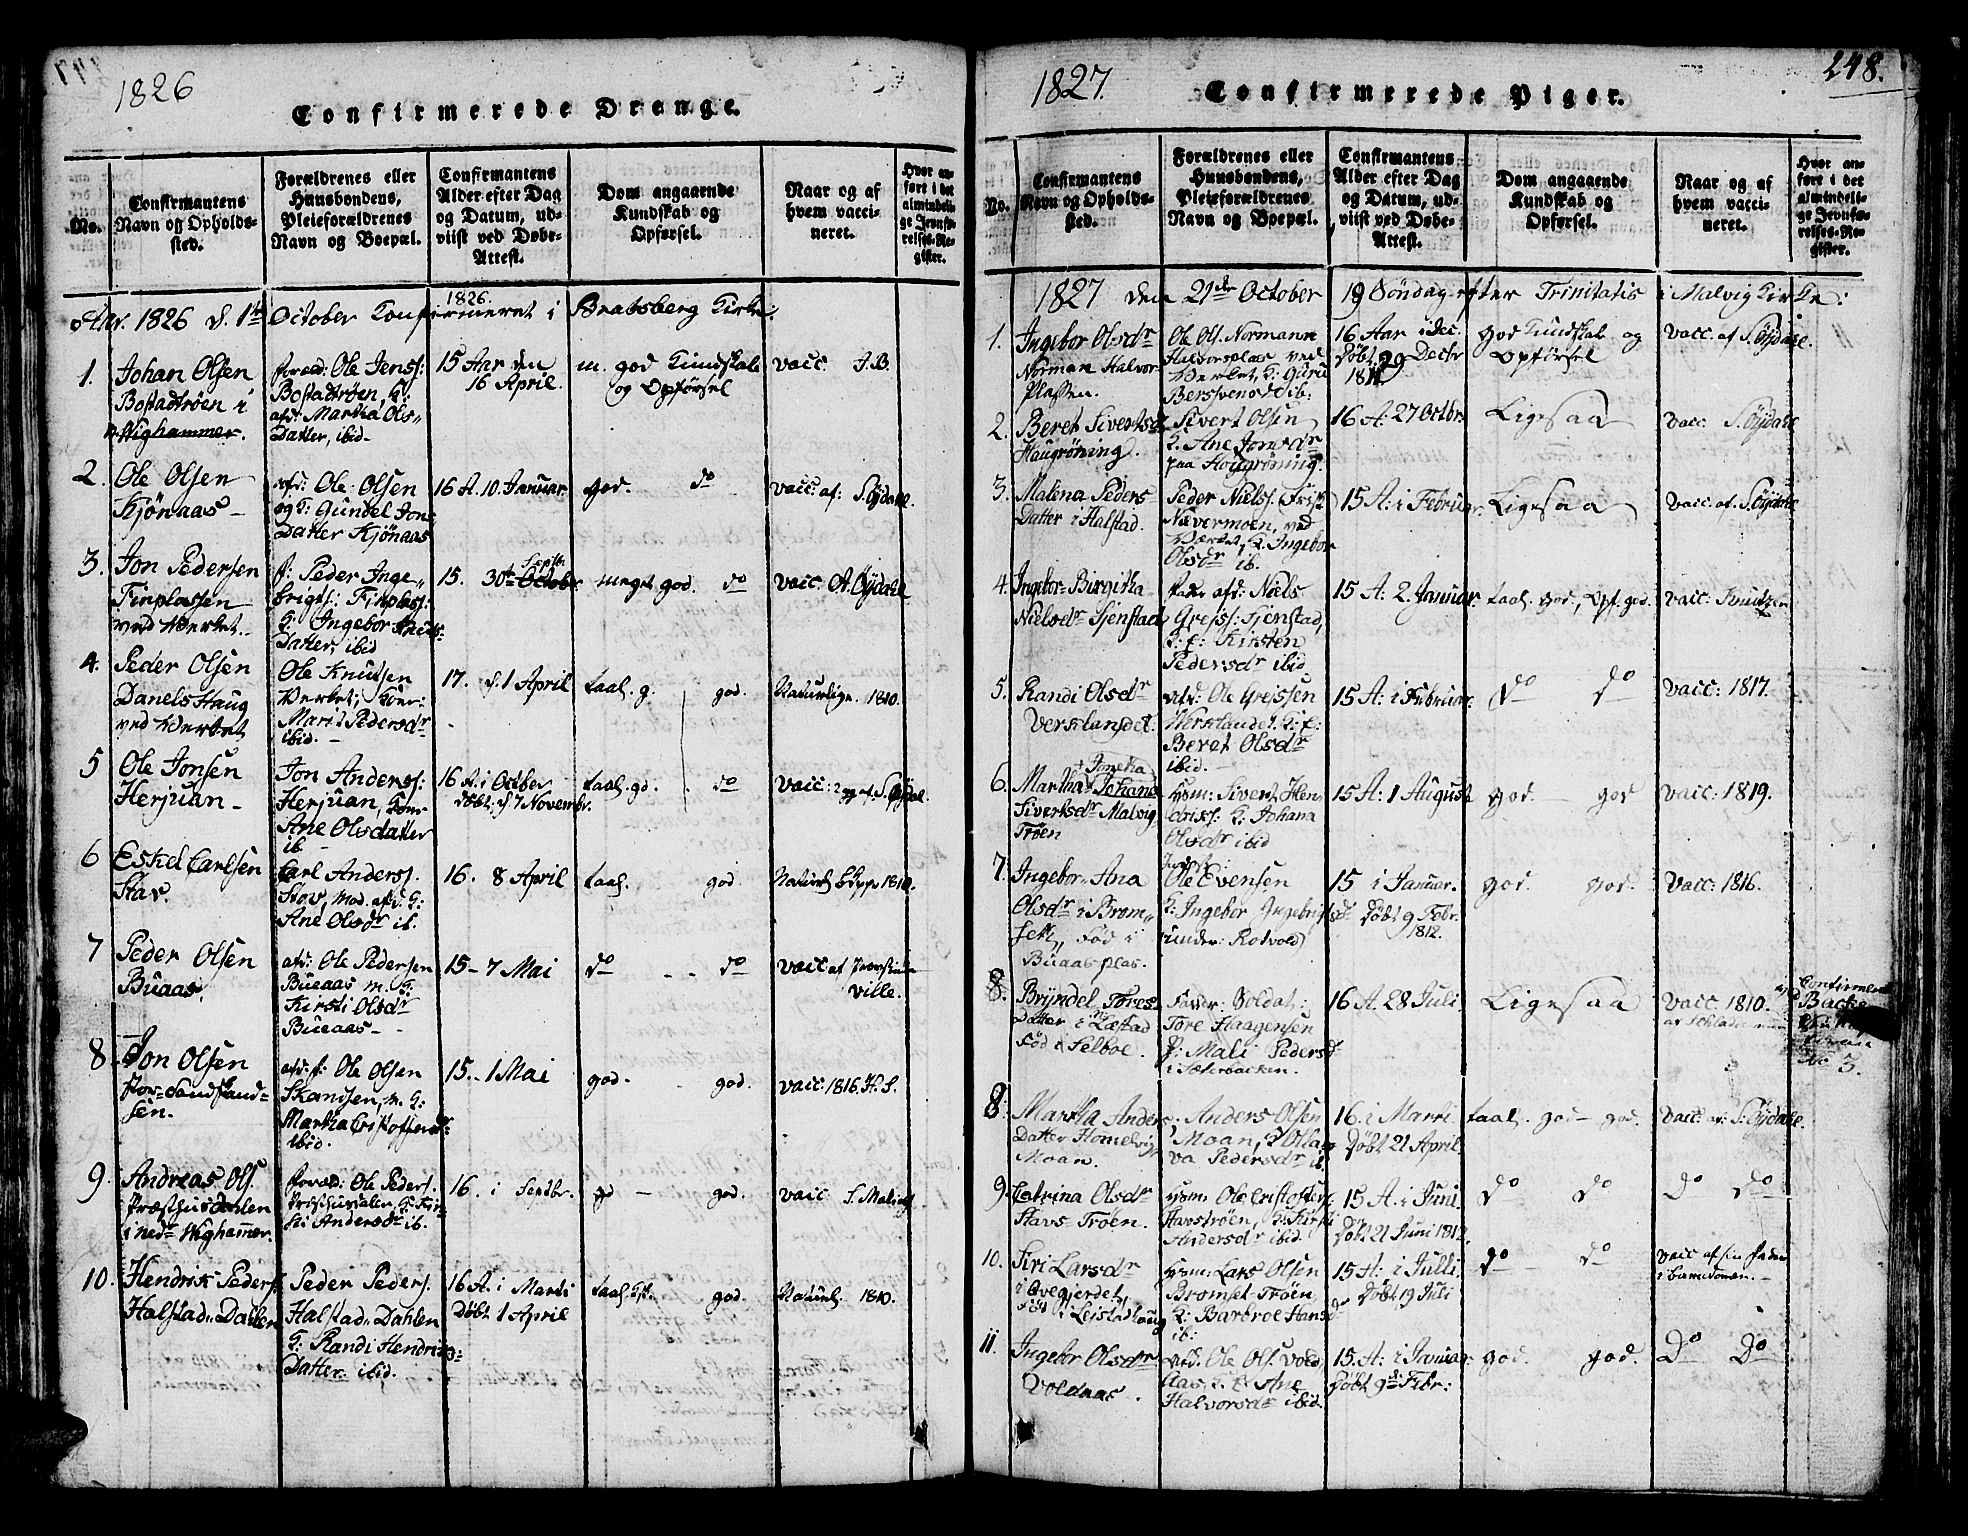 1826
Confirmerede Drenge.
No.
Confirmantens
Navn og Opholds-
sted.
Forældrenes eller
Huusbondens,
Pleieforældrenes
Navn og Boepæl.
Confirmantens
Alder efter Dag
og Datum, ud-
viist ved Døbe-
Attest.
Dom angaaende
Kundskab og
Opførsel.
Naar og af
hvem vacci-
neret.
Hvor an-
ført i det
almindeli-
ge Jevnfø-
relses-Re-
gister.
1826.
Anr. 1826 d. 1te October Confirmeret i Bratsberg Kirke.
1. Johan Olsen
Bostadtrøen i
Wighammer.
foræd: Ole Jenss:
Bostadtrøen, K:
afd: Martha Ols-
Datter, ibid-
15 Aar den
16 April.
m. god Kundskab
og Opførsel
vacc J.B.
2. Ole Olsen
Kjönaas -
afd: Ole Olsen
og K: Gundel Jons
Datter Kjönaas
16 A. 10. Januar.
god. do
vacc af: S. Öÿdahl.
3. Jon Pedersen
Finplassen
ved Værket..
f: Peder Inge-
brigts: Finplas:
K: Ingebor Knuds-
Datter, ibid
15. 30te October
Septbr
meget god. do
vacc. A. Öÿdahl
4. Peder Olsen
Danels Haug
ved Værket
Ole Knudsen
Værket; Koer:
Marit Pedersdr
ibid. -
17. d. 1 April
taal. g. god.
Naturlige. 1810.
5 Ole Jonsen
Herjuan -
Jon Anderss:
Herjuan, Kone
Ane Olsdatter
ib -
16 A. i October
Döbt: d. 7 Novembr.
taal. gd. do
vacc: 2 gg af: S. Öÿdal.
6 Eskel Carlsen
Stav.
Carl Anderss.
Stov, Mod. afd. K:
Ane Olsdr ib.
16. 8 April
taal. god.
Naturl. Kopp. 1810.
7 Peder Olsen
Buaas.
afd: Ole Pedersen
Bueaas m. K:
Kirsti Olsdr
Bueaas -
15 - 7 Mai
do - - do
vacc af Provstinde
ville.
8 Jon Olsen
for Sandskand-
sen.
afd: f: Ole Olsen
Skandsen, m. K:
Martha Cristoffersdr
ibid.
15.- 1 Mai
god. - god.
vacc: 1816. H. S.
9. Andreas Ols.
Præsthusdahlen
i nedr Wighammer.
foræd: Ole Peders.
Præsthusdalen, K: Kir-
sti Andersdr ib.
16. i Septbr.
gd - god.
vacc S. Malvig
10. Hendrik Peders:
Halstad-Dahlen
Peder Peders.
Halstad-Dahlen
K: Randi Hendriks-
Datter ibid.
16 A. i Marti
Döbt 1 April
taal. god.
Naturl. 1810.
1827.
Confirmerede Piger.
248.
No.
Confirmantens
Navn og Opholds-
sted.
Forældrenes eller
Huusbondens,
Pleieforældrenes
Navn og Boepæl.
Confirmantens
Alder efter Dag
og Datum, ud-
viist ved Døbe-
Attest.
Dom angaaende
Kundskab og
Opførsel.
Naar og af
hvem vacci-
neret.
Hvor an-
ført i det
almindeli-
ge Jevnfø-
relses-Re-
gister.
1827 den 21de October 19 Söndag efter Trinitatis i Malvig Kirke:
1. Ingebor Olsdr
Norman Halvor-
Plassen.
Ole Ols. Normann
Halvorsplass ved
Værket, K: Guru
Berstvensd ib:
16 Aar i Dec.
Döbt 29 Decbr
1811
god Kundskab og
Opførsel
vacc. af S. Öÿdahl.
2. Beret Sivertsdr
Haugröning.
Sivert Olsen
K. Ane Jonsdr
paa Hougröning.
16 A. 27 Octbr.
Ligesaa
vacc. S. Öÿdahl
3. Malena Peders-
Datter i Halstad.
Peder Niels:
Nævermoen, ved
Værket, K. Ingebor
Olsdr ib.
15 A: i Februar.
Ligesaa
vacc. af. S. Öÿdahl
4. Ingebor-Birgitha
Nielsdr Sjenstad
Fader afd: Niels
Grejss: Sjenstad,
K: E: Kirsten
Pedersdr ibid.
15 A: 2. Januar.
taal. god., Opf. god.
vacc: Knudtzen
5. Randi Olsdr
Verslandet.
afd: Ole Grejssen
Werslandet. K: E:
Beret Olsdr
ibid.
15 A: i Februar.
do do
vacc: 1817.
6. Martha Johana
Joneha
Sivertsdr Malvig
Tröen
Hsm: Sivert Hen-
drikss: K. Johana
Olsdr ibid
15 A: 1 August
god. - god
vacc: 1819.
7. Ingebor-Ana
Olsdr i Brom-
seth, Föd i
Buaasplas.
Ole Evensen
K: Ingebor Ingebrigtsdr
under: Rotvold)
15 i Januar.
Döbt 9 Febr.
1812.
god. god.
vacc: 1816.
8. Bryndel Tores
Datter i Læstad
Föd i Selboe.
Fader: Soldat:
Tore Haagensen
K: Mali Pedersdr
i Sæterbacken.
16 A. 28 Juli
Ligesaa
vacc 1810.
Confirmeret
Backe
No 3.
8. Martha Anders
Datter Homelvig
Moan.
Anders Olsen
Moan, K Ollau
va Pedersdr ib.
16. i Marti
Döbt 21 April.
taal. god - god.
vacc. af: S. Öÿdahl.
9. Catrina Olsdr
Stavs-Tröen.
Hsm: Ole Cristoffers.
Stavströen, K: Kirsti
Andersdr ibid.
15 A. i Juni.
Döbt 21 Juni 1812.
do do
Do Do
10. Siri Larsdr
i Qvegjerdet,
Föd i Leistadhaug
Hsm: Lars Olsen
Bromset-Tröen,
K: Barbroe Hansdr
ib:
15 A: i Julli.
Döbt 19 Juli
do - do
vacc af sin Fader
i barndomen. -
11. Ingebor Olsdr
Voldaas.
afd. Ole Ols. Vold
Aas, K: E: Ane
Halvorsdr ibid.
15. A: i Januar
Döbt 9de Febr:
god. god.
Do Do